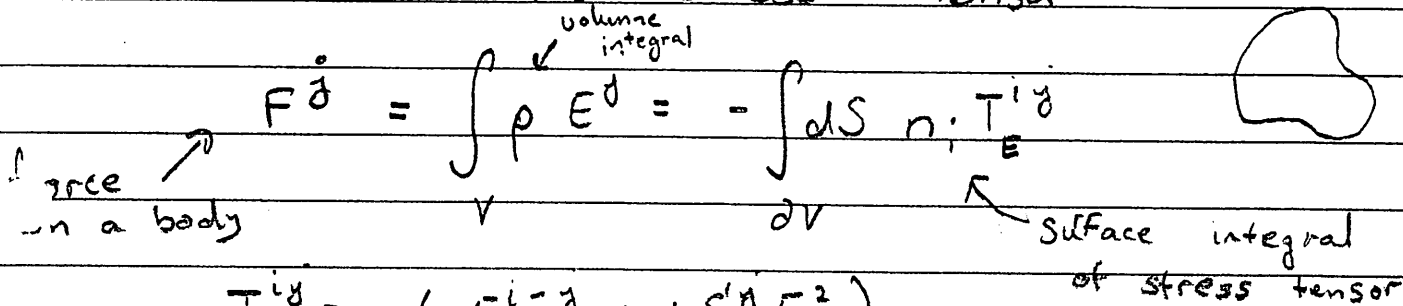 tensor
volume
integral
F^j = ∫_V ρ E^j = - ∫_∂V dS n_i T_E^{ij}
on a body
surface integral
of stress tensor
T^{ij}